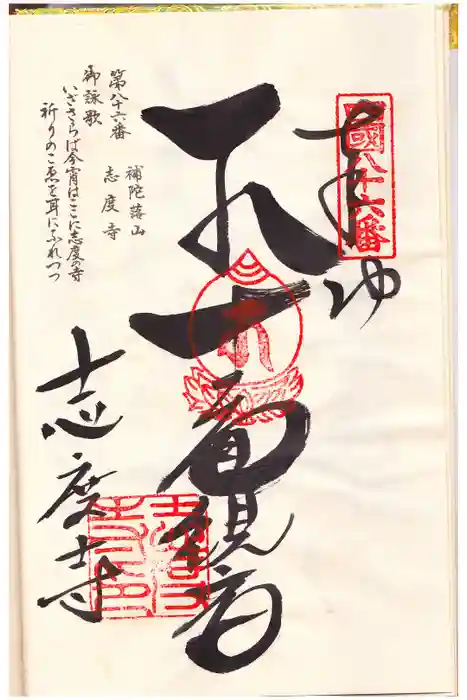 奉納
國八十六番
十一面観音
志度寺
第八十六番
補陀落山
志度寺
御詠歌
いざさらば今宵はここに志度の寺
祈りのこゑを耳にふれつつ